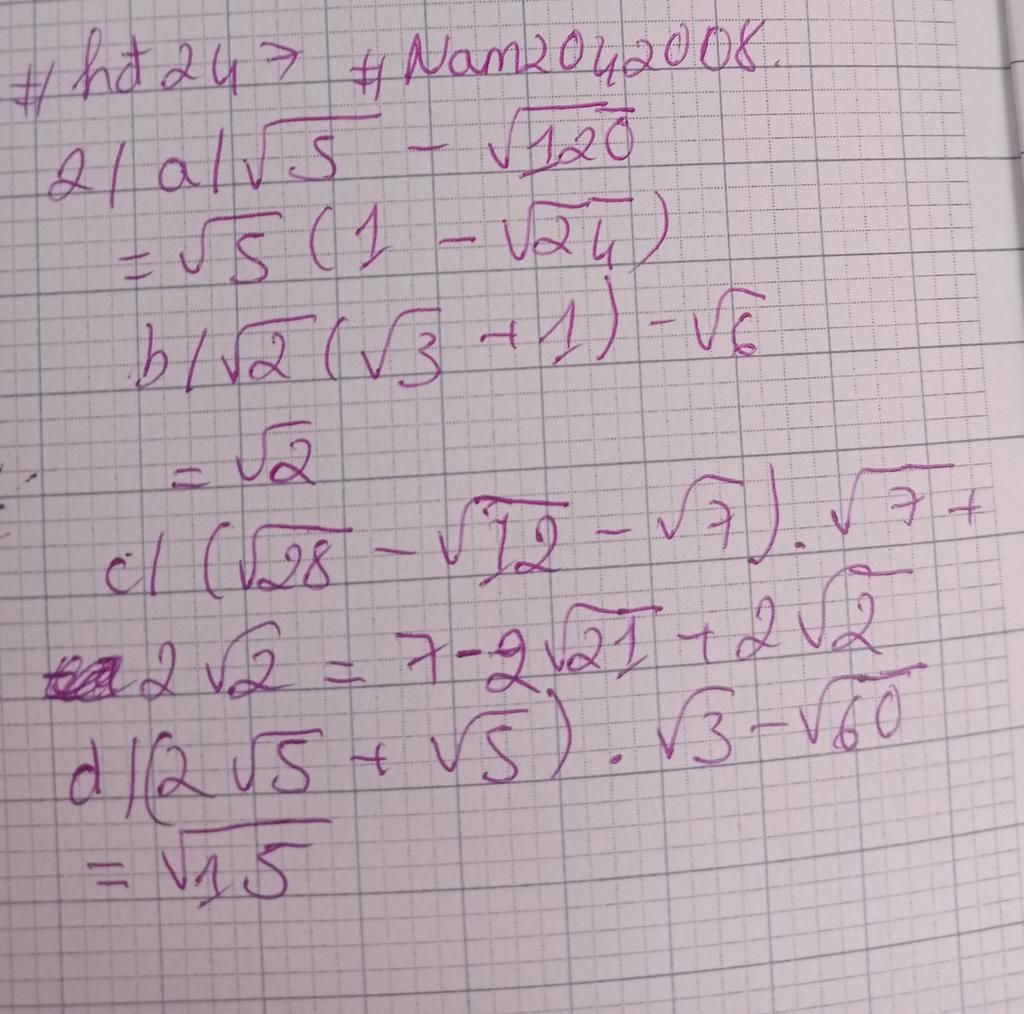 #hd24 > #Nam2042008.
2/ a/ √5 - √120
= √5 (1 - √24)
b/ √2 (√3 + 1) - √6
= √2
c/ (√28 - √12 - √7) . √7 +
2√2 = 7 - 2√21 + 2√2
d/ (2√5 + √5) . √3 - √60
= √15